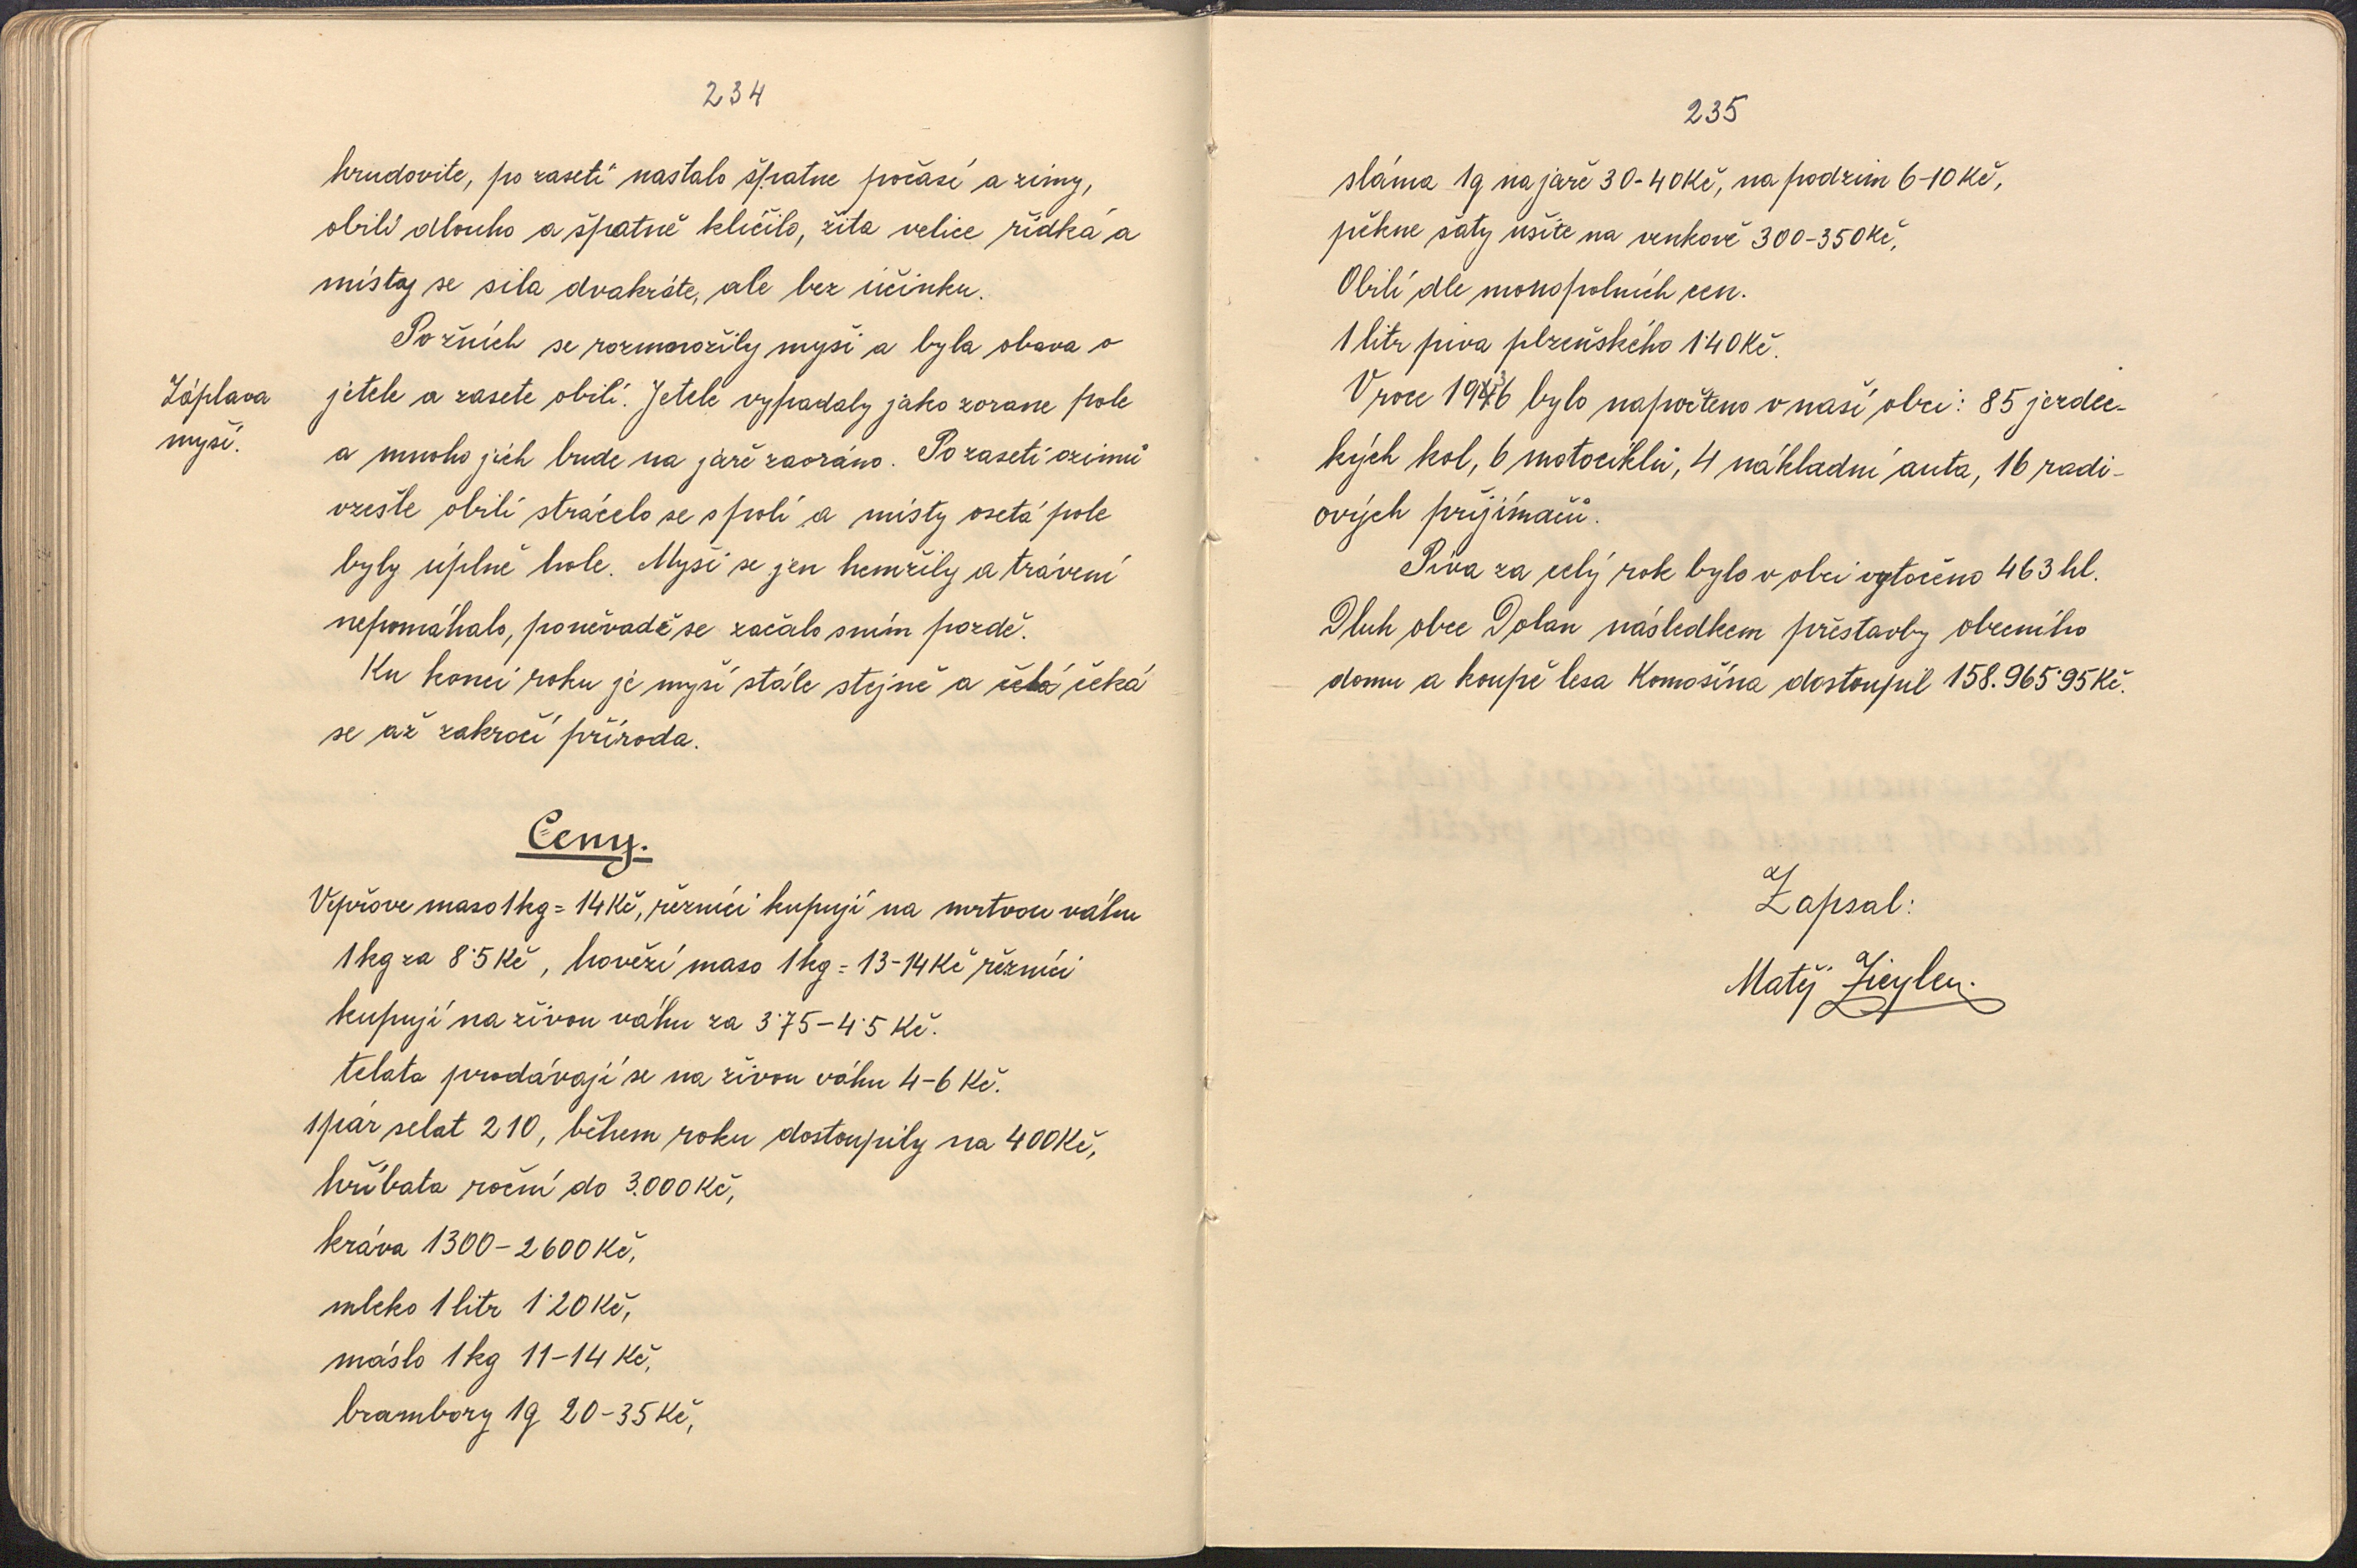 234
hrudovite, po zasetí nastalo špatne počasí a zimy,
obilí dlouho a špatně klíčilo, žita velice řídká a
místy se sila dvakráte, ale bez účinku.
Po žních se rozmnožily myši a byla obava o
Záplava
myší.
jetele a zasete obilí. Jetele vypadaly jako zorane pole
a mnoho jich bude na jaře zaoráno. Po zasetí ozimů
vzešle obilí strácelo se s polí a místy osetá pole
byly úplně hole. Myši se jen hemžily a trávení
nepomáhalo, poněvadě se začalo sním pozdě.
Ku konci roku je myší stále stejně a čeká
se až zakročí příroda.
Ceny.
Vepřove maso 1kg = 14 Kč, řezníci kupují na mrtvou váhu
1kg za 8·5 Kč, hovězí maso 1kg = 13-14 Kč řezníci
kupují na živou váhu za 3·75-4·5 Kč.
telata prodávají se na živou váhu 4-6 Kč.
1 pár selat 210, během roku dostoupily na 400 Kč,
hříbata roční do 3.000 Kč,
kráva 1300-2600 Kč,
mleko 1 litr 1·20 Kč,
máslo 1 kg 11-14 Kč,
brambory 1q 20-35 Kč,
235
sláma 1q na jaře 30-40 Kč, na podzim 6-10 Kč,
pěkne šaty ušite na venkově 300-350 Kč,
Obilí dle monopolních cen.
1 litr piva plzeňského 1·40 Kč.
V roce 1936 bylo napočteno v naší obci: 85 jezdec-
kých kol, 6 motociklů, 4 nákladní auta, 16 radi-
ových přijímačů.
Piva za celý rok bylo v obci vytočeno 463 hl.
Dluh obce Dolan následkem přestavby obecního
domu a koupě lesa Komošína dostoupil 158.965·95 Kč.
Zapsal:
Matěj